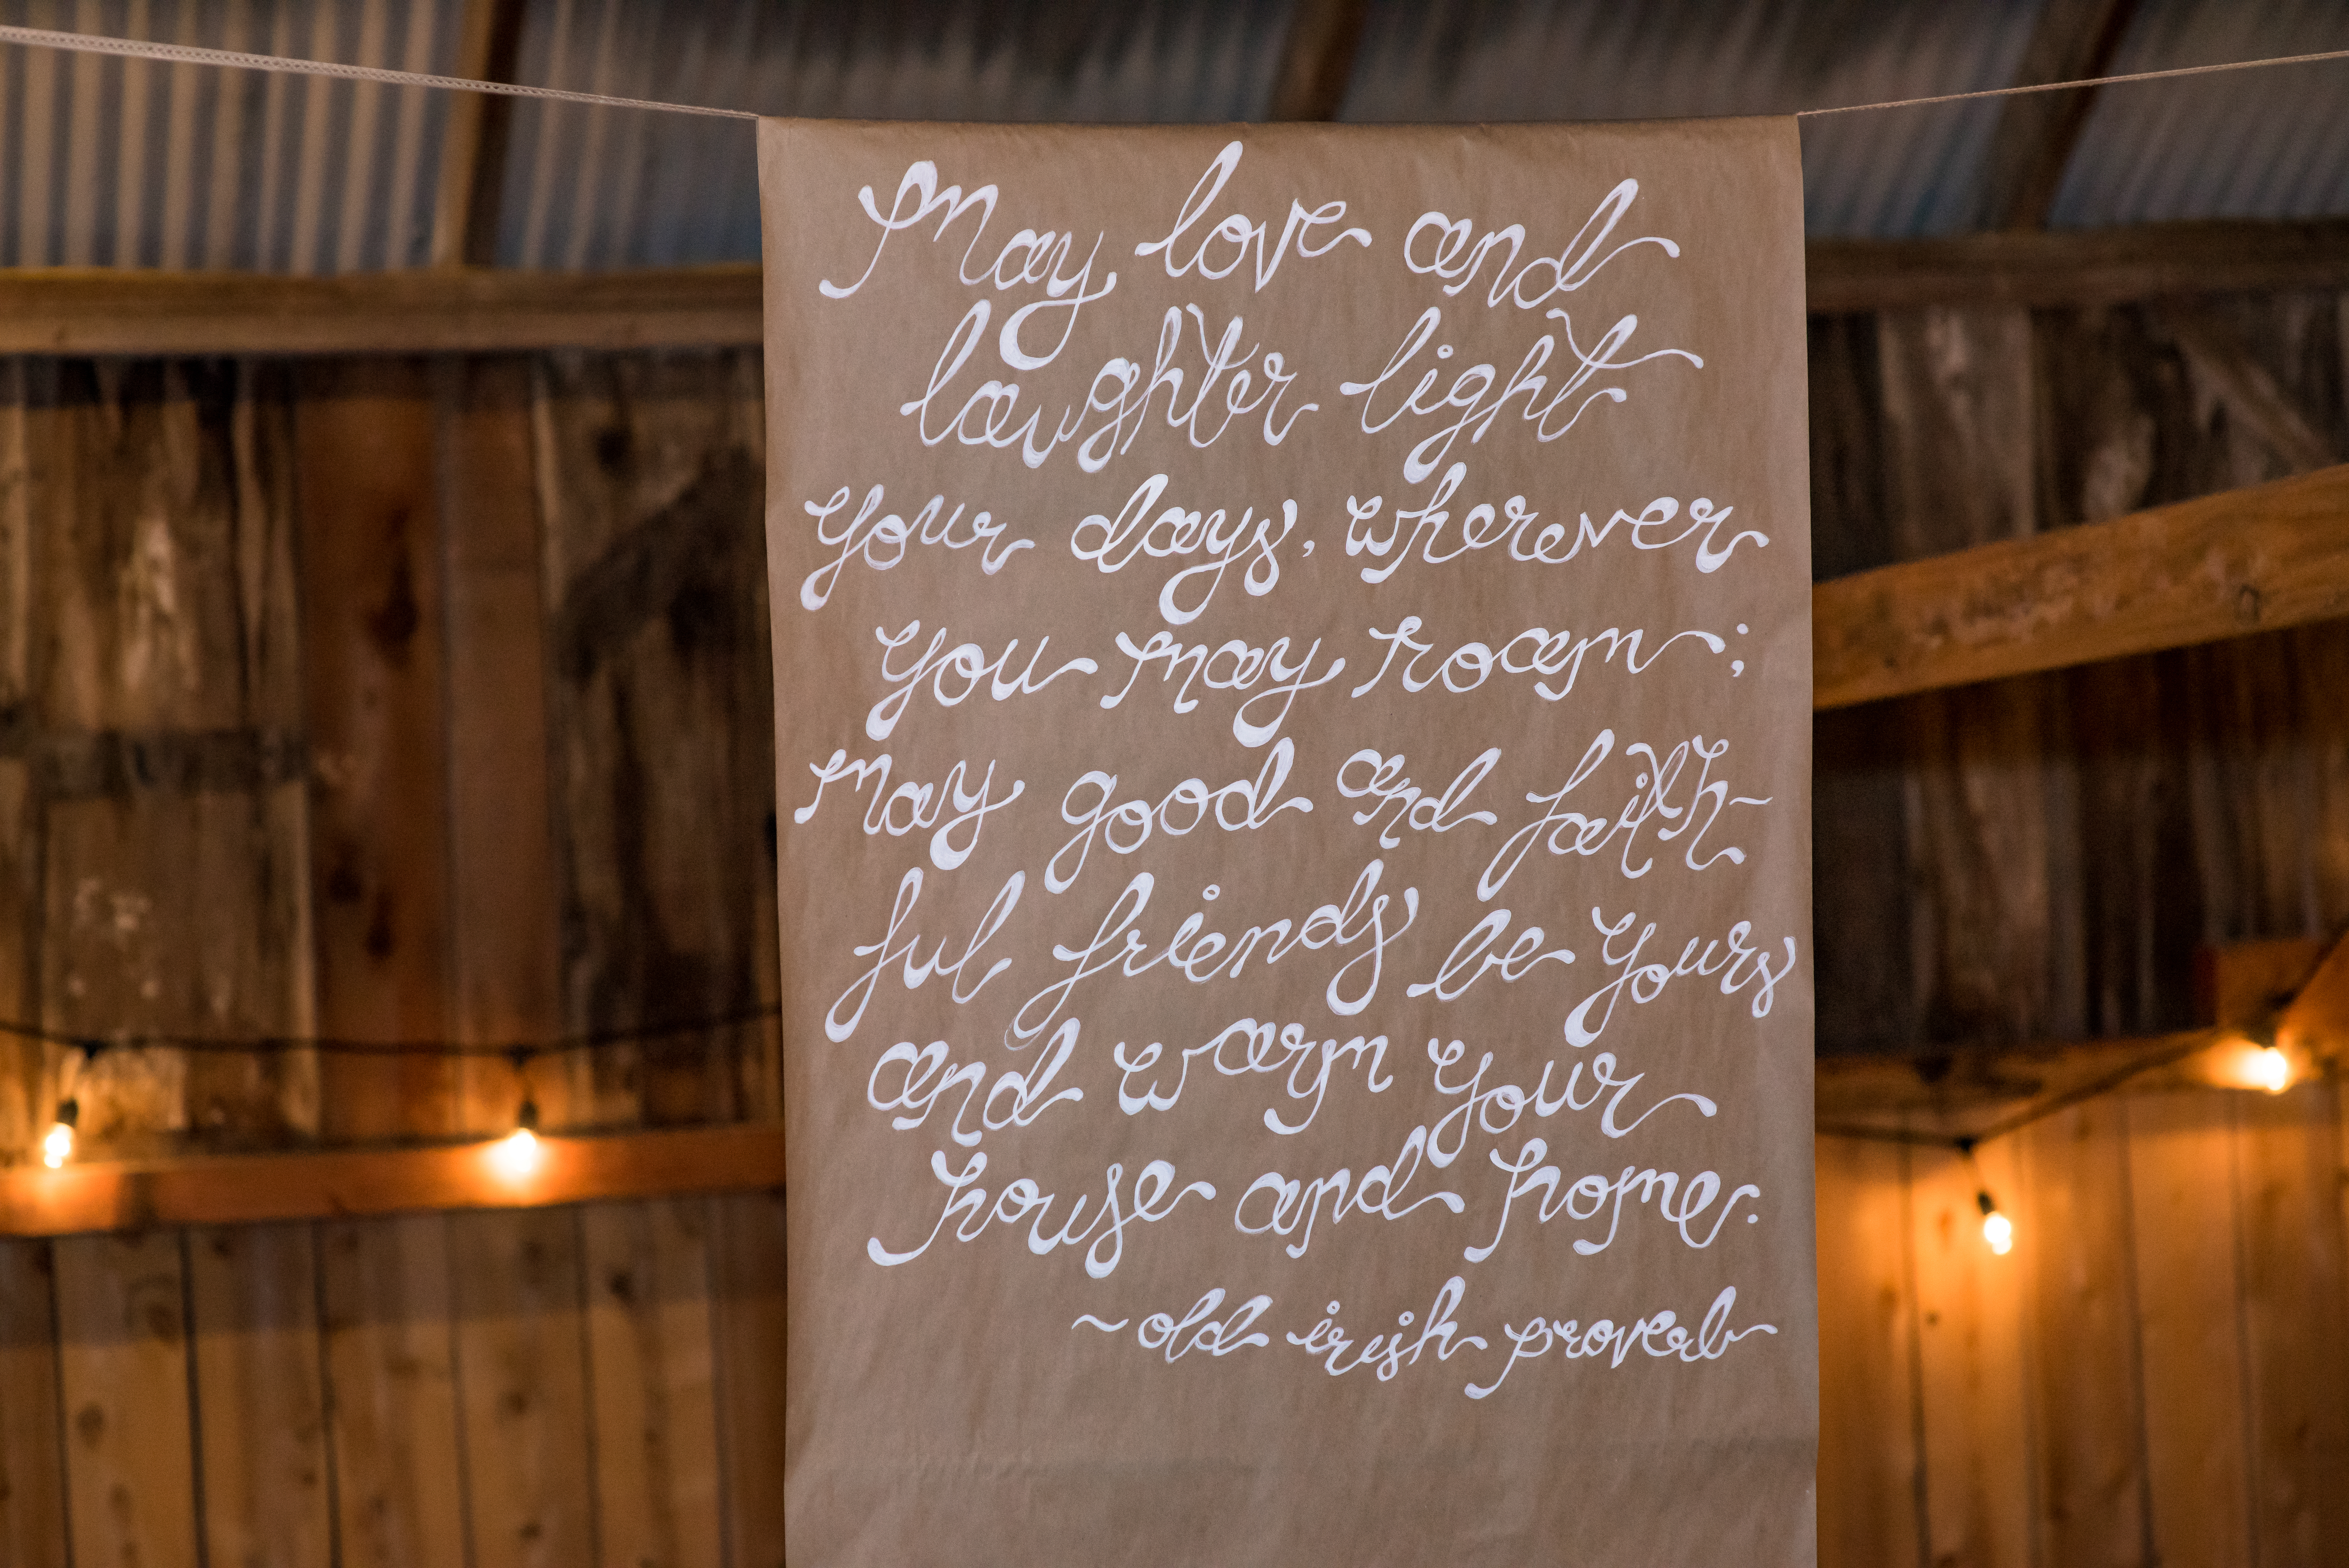 May love and
laughter light
your days, wherever
you may roam;
may good and faith-
ful friends be yours
and warm your
house and home.
~old irish proverb